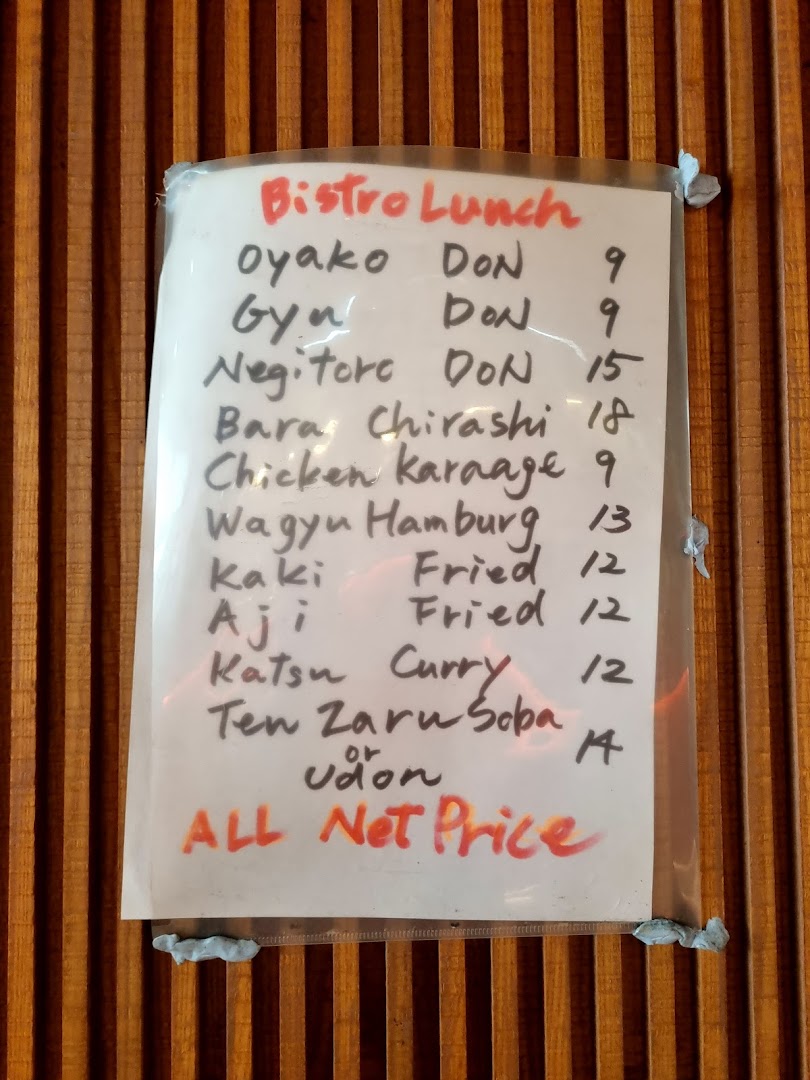 Bistro Lunch
Oyako DON 9
Gyu DON 9
Negitoro DON 15
Bara Chirashi 18
Chicken Karaage 9
Wagyu Hamburg 13
Kaki Fried 12
Aji Fried 12
Katsu Curry 12
Ten Zaru Soba
or 14
Udon
ALL Net Price